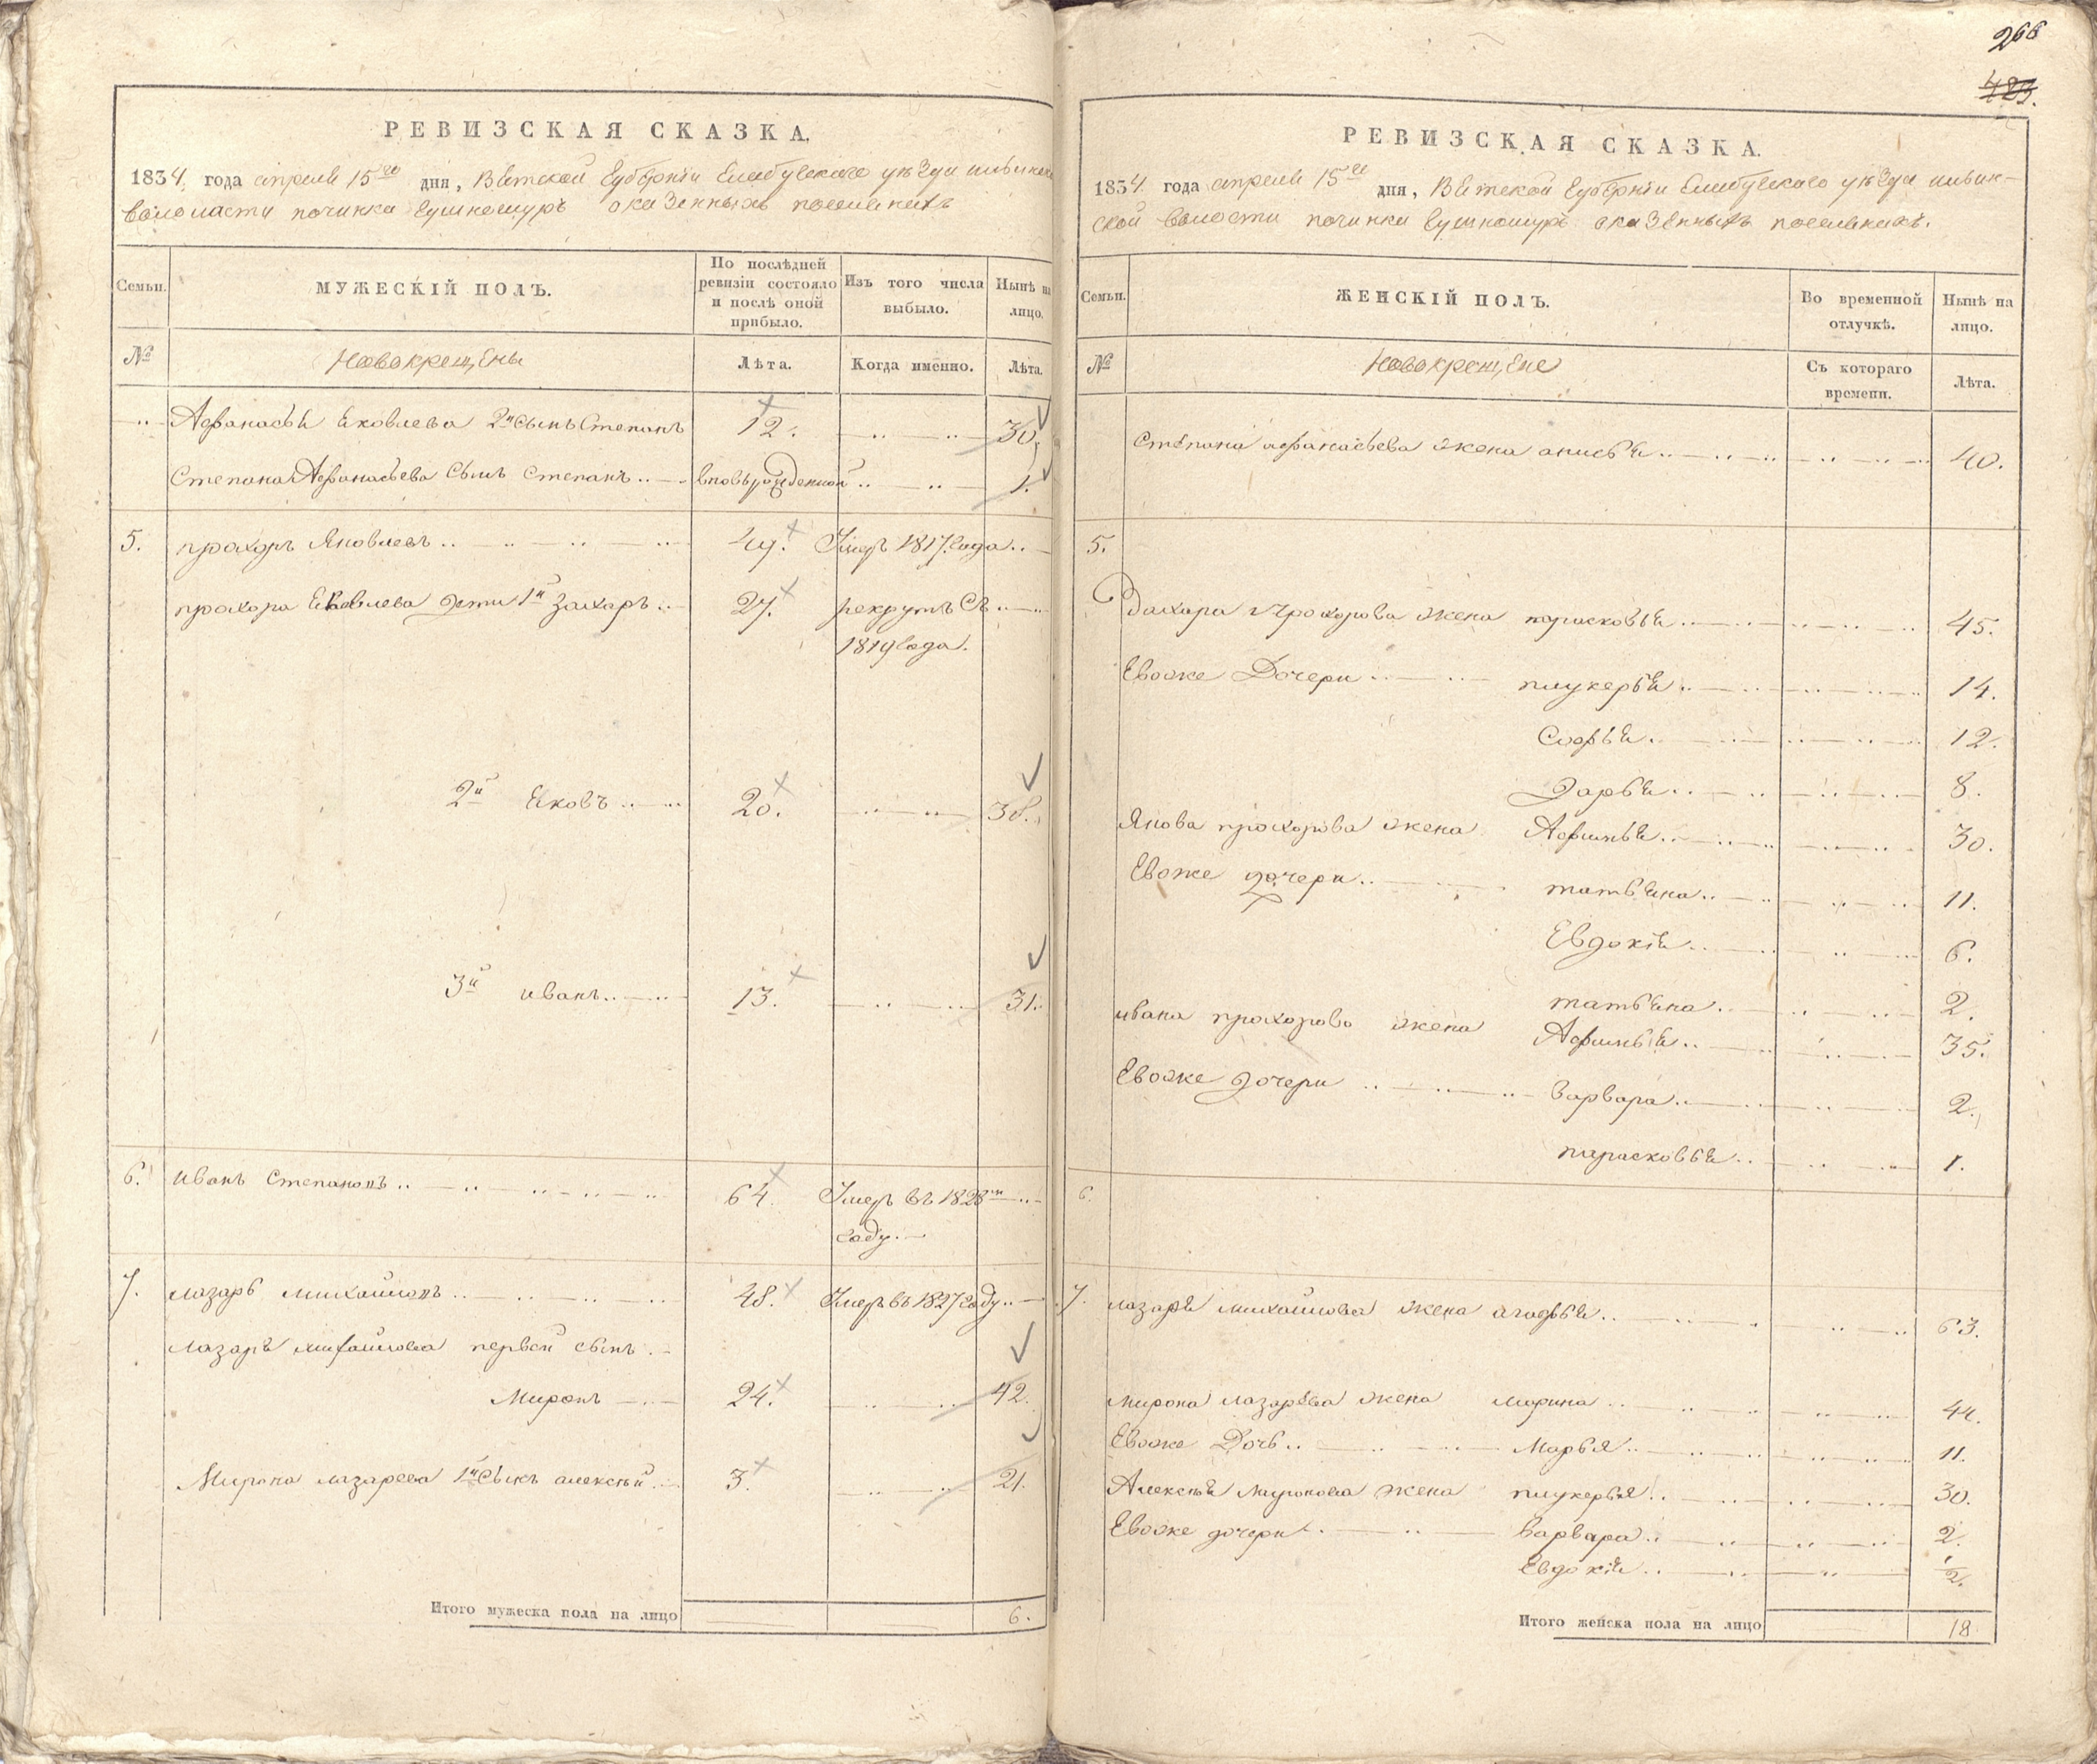 РЕВИЗСКАЯ СКАЗКА.
1834. года апреля 15го дня, Вятской Губернiи Елабугскаго уѣзда
волости починка Гушношуръ о казенныхъ поселянахъ
Семьи. МУЖЕСКIЙ ПОЛЪ. По послѣдней ревизiи состояло и послѣ оной прибыло. Изъ того числа выбыло. Нынѣ на лицо.
№ Новокрещены Лѣта. Когда именно. Лѣта.
Афанасья Яковлева 2й сынъ Степанъ 12. 30.
Степана Афанасьева сынъ Степанъ вновьрожденной 1.
5. прохоръ Яковлевъ 49. Умеръ 1817. года
прохора Яковлева дети 1й Захаръ 27. рекрутъ съ
1819 года.
2й Яковъ 20. 38.
3й иванъ 13. 31.
6. иванъ Степановъ 64. Умеръ въ 1828м
году.
7. лазарь михайловъ 48. Умеръ въ 1827 году
лазаря михайлова первой сынъ
Миронъ 24. 42.
Мирона лазарева 1й сынъ алексѣй 3. 21.
Итого мужеска пола на лицо 6.
266
483.
РЕВИЗСКАЯ СКАЗКА.
1834. года апреля 15го дня, Вятской Губернiи Елабугскаго уѣзда
ской волости починка Гушношуръ о казенныхъ поселянахъ.
Семьи. ЖЕНСКIЙ ПОЛЪ. Во временной отлучкѣ. Нынѣ на лицо.
№ Новокрещене Съ котораго времени. Лѣта.
Степана афанасьева жена анисья 40.
5.
Захара прохорова жена парасковья 45.
Евоже Дочери глукерья 14.
Софья 12.
Дарья 8.
Якова прохорова жена Афимья 30.
Евоже дочери татьяна 11.
Евдокiя 6.
татьяна 2.
ивана прохорова жена Афимья 35.
Евоже дочери варвара 2.
парасковья 1.
6.
7. лазаря михайлова жена агафья 63.
мирона лазарева жена марина 44.
Евоже Дочь Марья 11.
Алексѣя миронова жена глукерья 30.
Евоже дочери варвара 2.
Евдокiя 1/2.
Итого женска пола на лицо 18